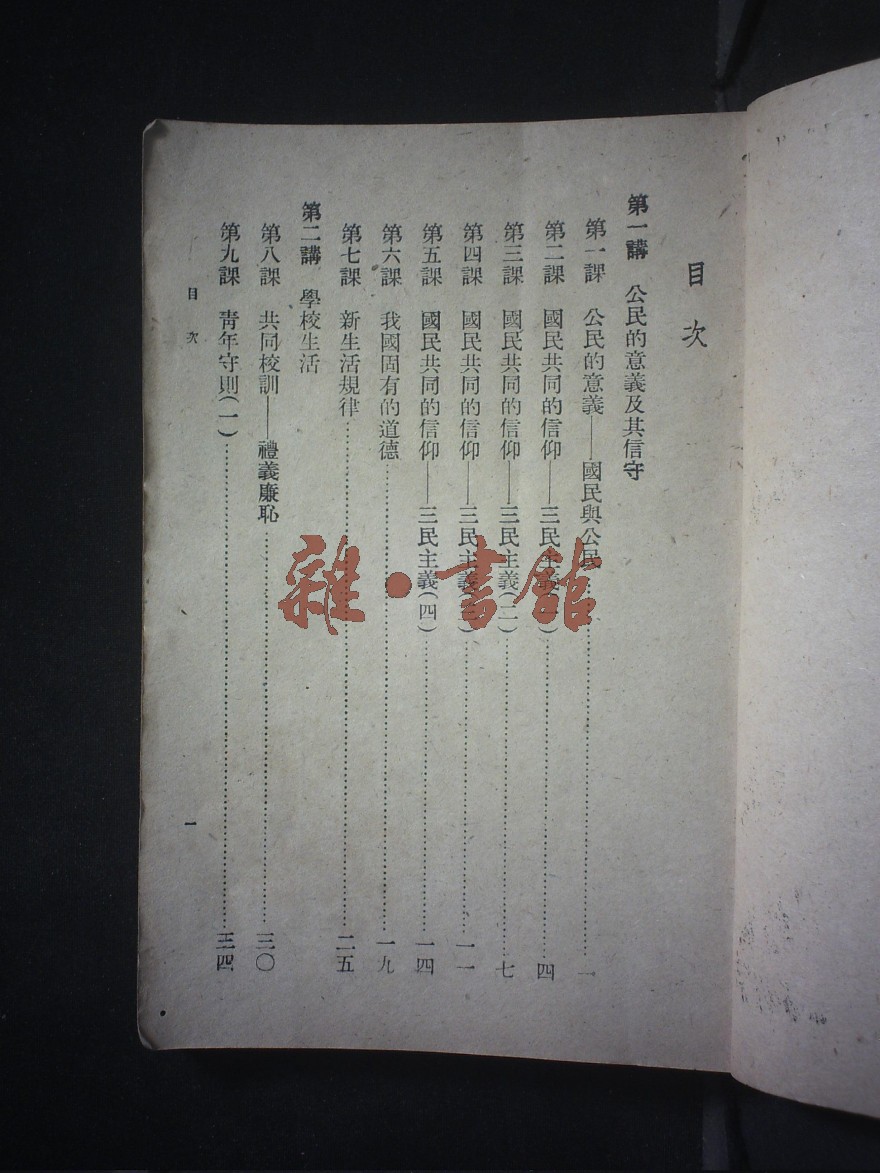 目次
第一講 公民的意義及其信守
第一課 公民的意義——國民與公民……一
第二課 國民共同的信仰——三民主義(一)……四
第三課 國民共同的信仰——三民主義(二)……七
第四課 國民共同的信仰——三民主義(三)……一一
第五課 國民共同的信仰——三民主義(四)……一四
第六課 我國固有的道德……一九
第七課 新生活規律……二五
第二講 學校生活
第八課 共同校訓——禮義廉恥……三〇
第九課 靑年守則(一)……三四
目次 一
雜·書館